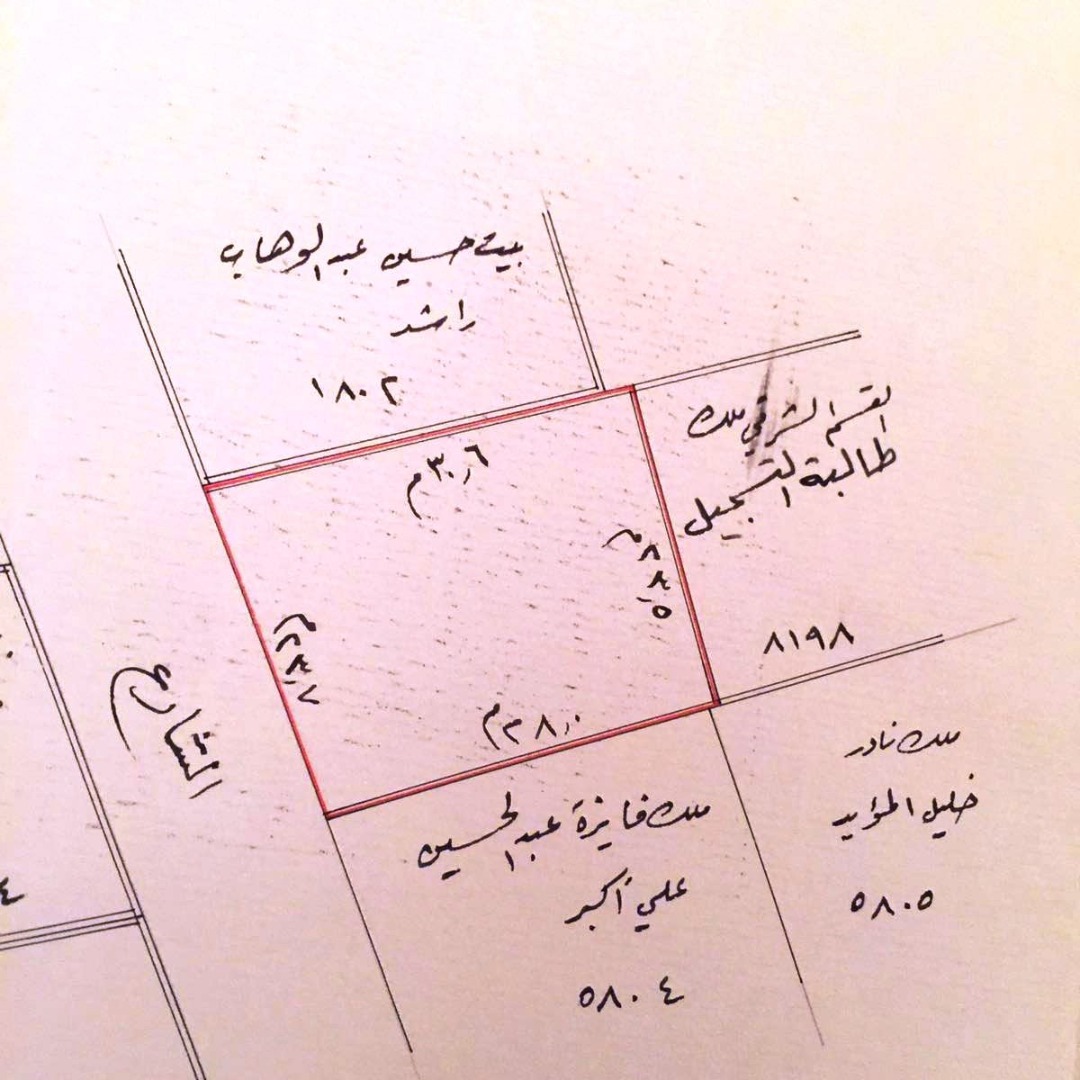 بيت حسين عبدالوهاب
راشد
١٨٠٢
القسم الشرقي ملك
طالبة التسجيل
٨١٩٨
٣٠٫٦م
الشارع
ملك نادر
خليل المؤيد
٥٨٠٥
ملك فايزة عبدالحسين
علي أكبر
٥٨٠٤
٤